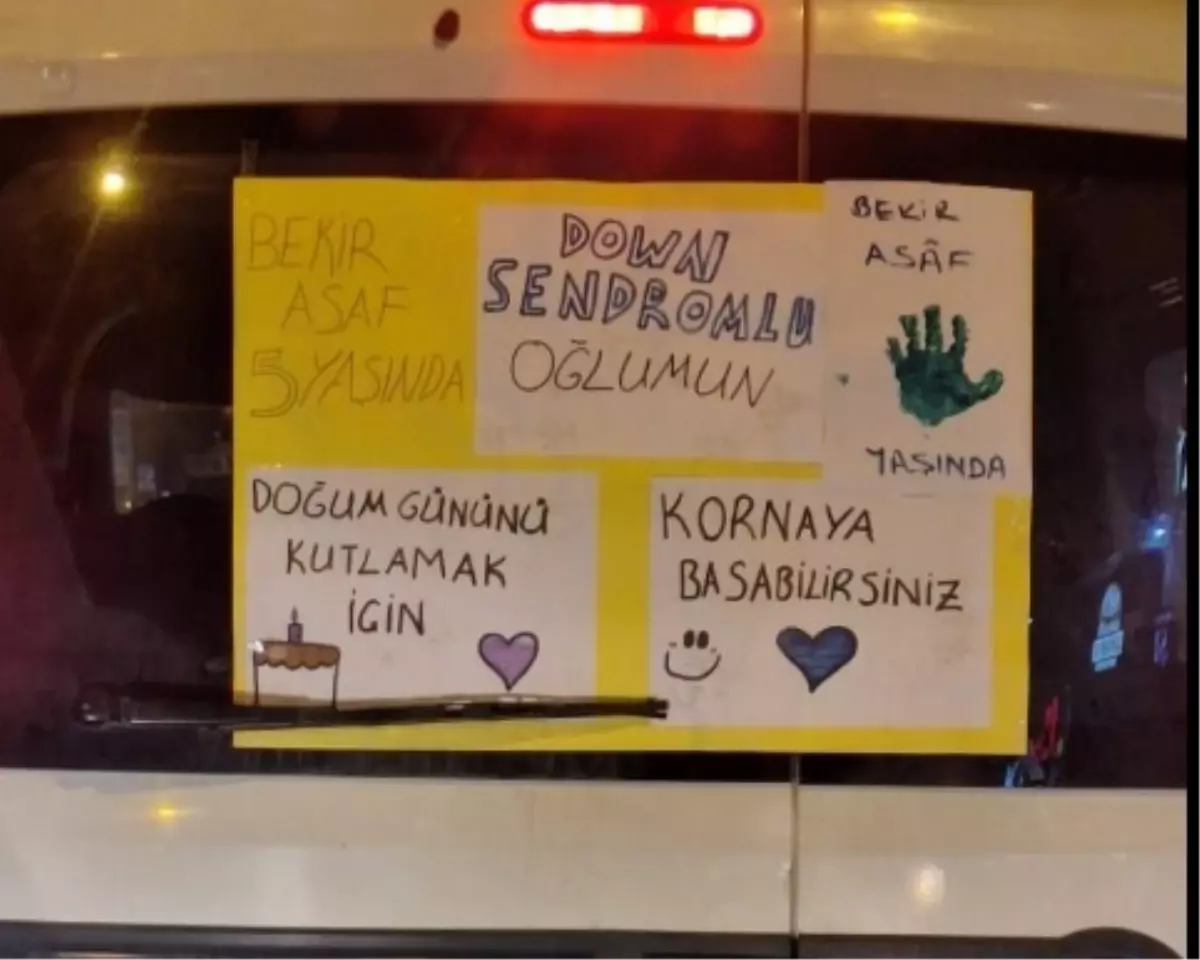 BEKİR
ASAF
5 YAŞINDA
DOWN
SENDROMLU
OĞLUMUN
BEKiR
ASÂF
YAŞINDA
DOĞUM GÜNÜNÜ
KUTLAMAK
İÇİN
KORNAYA
BASABiLiRSiNiZ